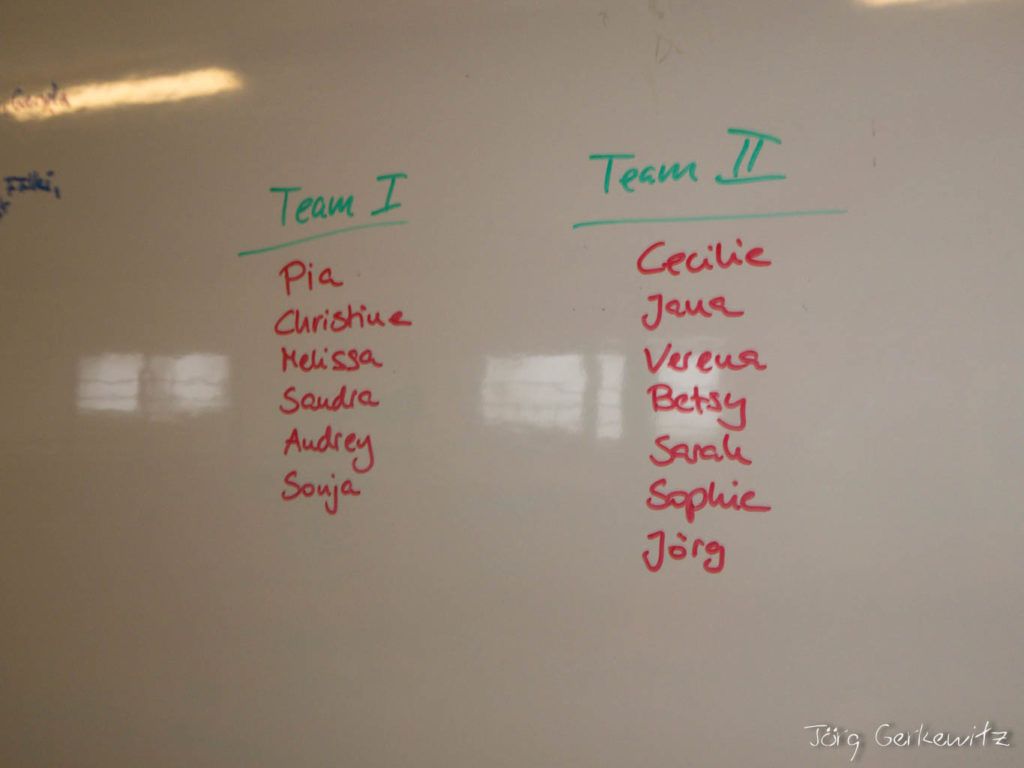 Team I
Pia
Christine
Melissa
Sandra
Audrey
Sonja
Team II
Cecilie
Jana
Verena
Betsy
Sarah
Sophie
Jörg
Jörg Gerkewitz